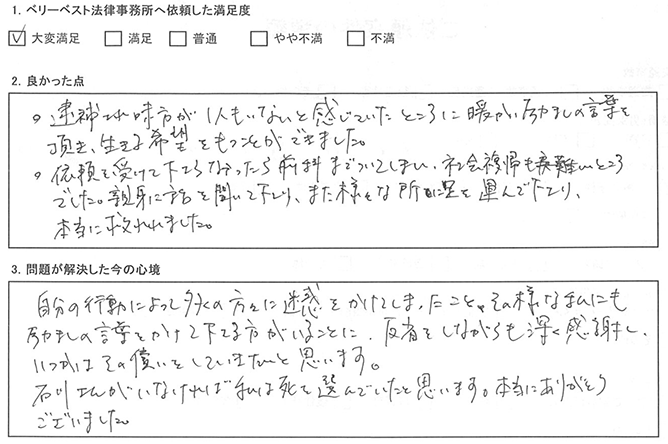 1. ベリーベスト法律事務所へ依頼した満足度
☑ 大変満足 □ 満足 □ 普通 □ やや不満 □ 不満
2. 良かった点
。逮捕され味方が1人もいないと感じていたところに暖かい励ましの言葉を
頂き、生きる希望をもつことができました。
。依頼を受けて下さらなかったら前科までついてしまい、社会復帰も困難いところ
でした。親身に話を聞いて下さり、また様々な所に足を運んで下さり、
本当に救われました。
3. 問題が解決した今の心境
自分の行動によって多くの方々に迷惑をかけてしまったこと、その様な私にも
励ましの言葉をかけて下さる方がいることに、反省をしながらも深く感謝し、
いつかはその償いをしていきたいと思います。
石川さんがいなければ私は死を選んでいたと思います。本当にありがとう
ございました。